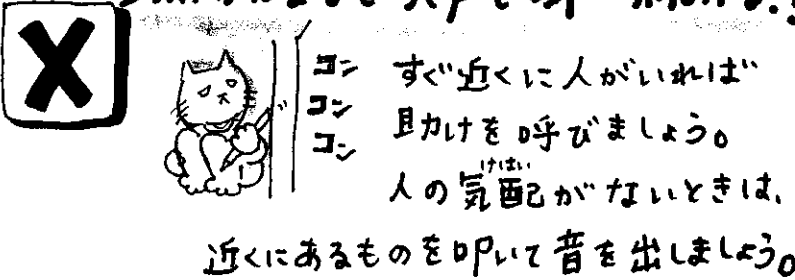 X
コン
コン
コン
すぐ近くに人がいれば
助けを呼びましょう。
けはい
人の気配がないときは、
近くにあるものを叩いて音を出しましょう。